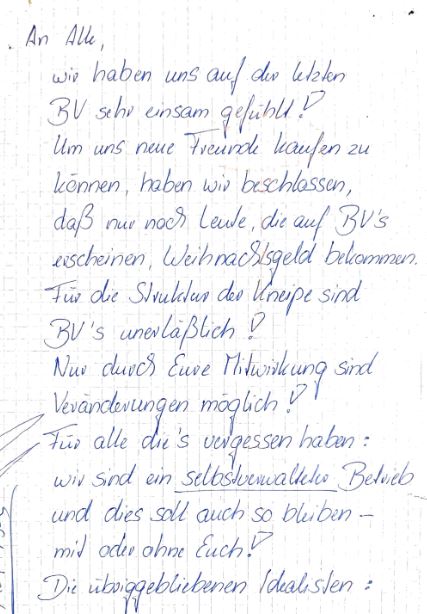 An Alle,
wir haben uns auf der letzten
BV sehr einsam gefühlt!
Um uns neue Freunde kaufen zu
können, haben wir beschlossen,
daß nur noch Leute, die auf BV's
erscheinen, Weihnachtsgeld bekommen.
Für die Struktur der Kneipe sind
BV's unerläßlich!
Nur durch Eure Mitwirkung sind
Veränderungen möglich!
Für alle die's vergessen haben:
wir sind ein selbstverwalteter Betrieb
und dies soll auch so bleiben –
mit oder ohne Euch!
Die übriggebliebenen Idealisten: